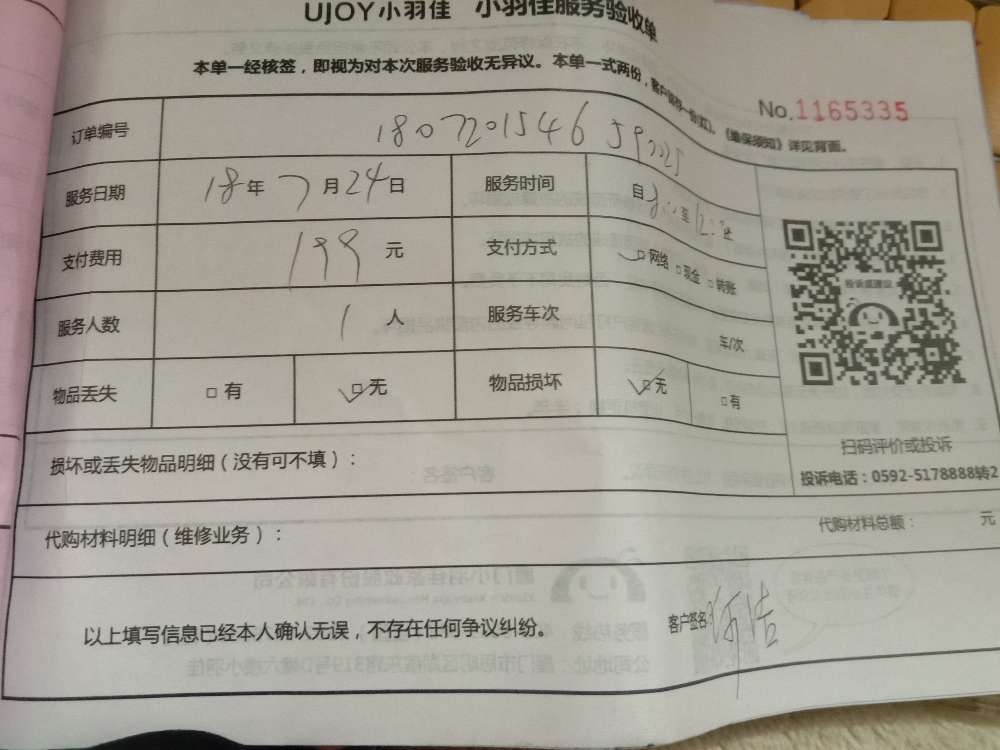 UJOY小羽佳 小羽佳服务验收单
本单一经核签，即视为对本次服务验收无异议。本单一式两份，客户保存一份(红)。《维保须知》详见背面。
No.1165335
订单编号 1807201546
服务日期 18年7月24日 服务时间 自 至 止
支付费用 199元 支付方式 □网络 □现金 □转账
服务人数 1人 服务车次 车/次
物品丢失 □有 □无 物品损坏 □无 □有
投诉或建议
扫码评价或投诉
投诉电话：0592-5178888转2
损坏或丢失物品明细（没有可不填）：
代购材料明细（维修业务）： 代购材料总额： 元
以上填写信息已经本人确认无误，不存在任何争议纠纷。 客户签名